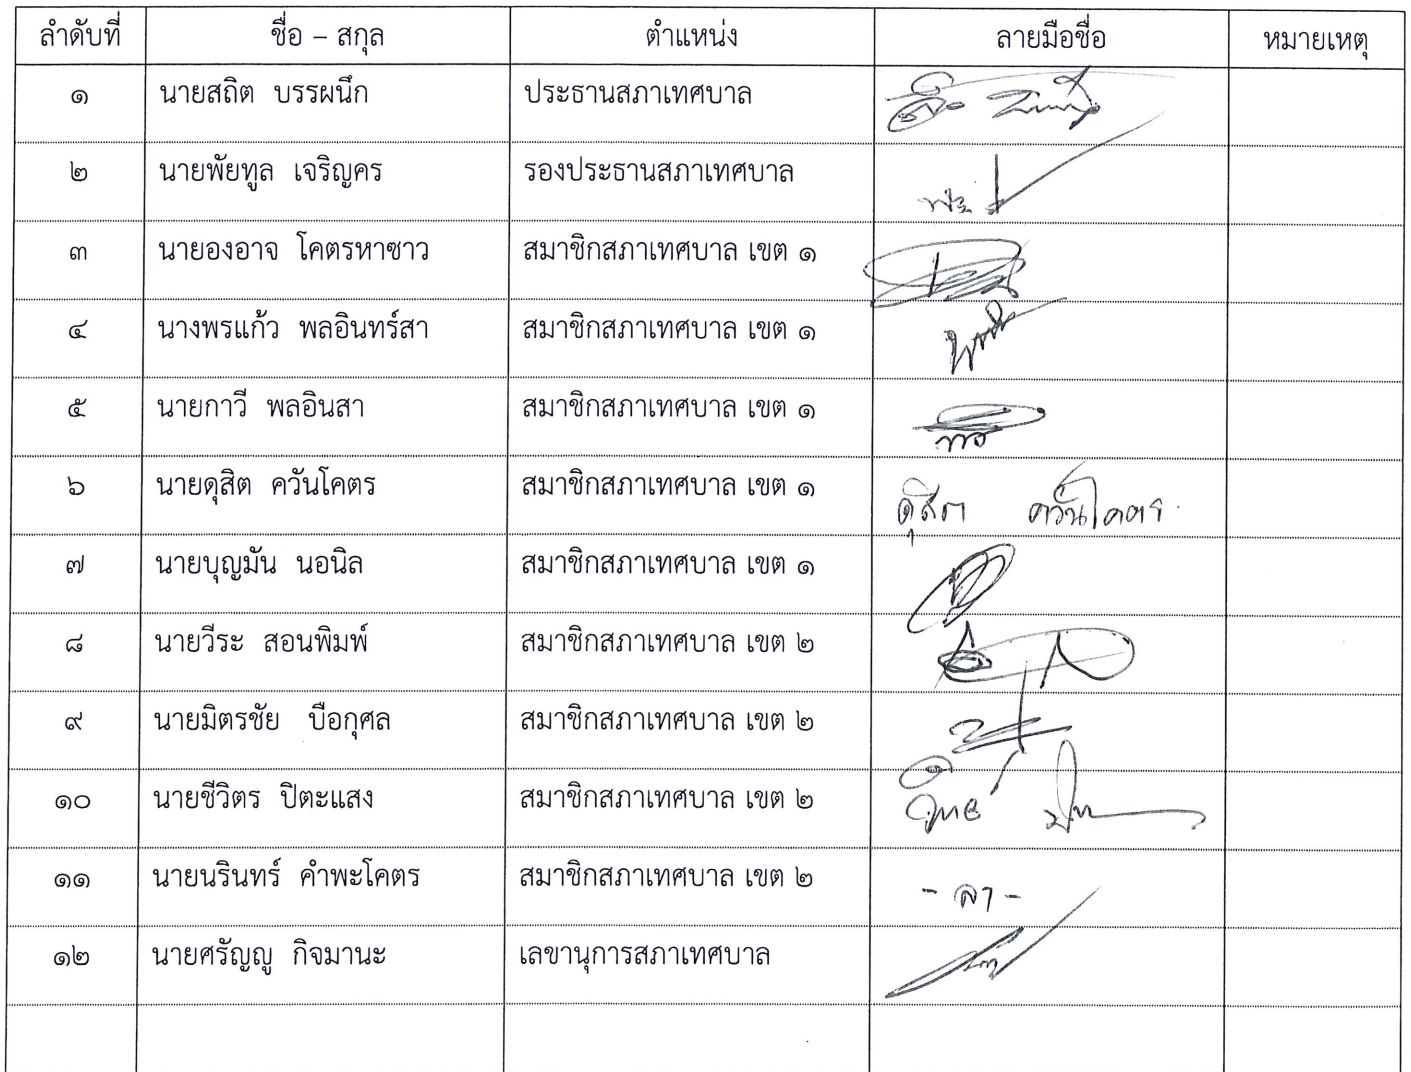 ลำดับที่ ชื่อ – สกุล ตำแหน่ง ลายมือชื่อ หมายเหตุ
๑ นายสถิต บรรผนึก ประธานสภาเทศบาล
๒ นายพัยทูล เจริญคร รองประธานสภาเทศบาล
๓ นายองอาจ โคตรหาซาว สมาชิกสภาเทศบาล เขต ๑
๔ นางพรแก้ว พลอินทร์สา สมาชิกสภาเทศบาล เขต ๑
๕ นายกาวี พลอินสา สมาชิกสภาเทศบาล เขต ๑
๖ นายดุสิต ควันโคตร สมาชิกสภาเทศบาล เขต ๑ ดุสิต ควันโคตร
๗ นายบุญมัน นอนิล สมาชิกสภาเทศบาล เขต ๑
๘ นายวีระ สอนพิมพ์ สมาชิกสภาเทศบาล เขต ๒
๙ นายมิตรชัย บือกุศล สมาชิกสภาเทศบาล เขต ๒
๑๐ นายชีวิตร ปิตะแสง สมาชิกสภาเทศบาล เขต ๒
๑๑ นายนรินทร์ คำพะโคตร สมาชิกสภาเทศบาล เขต ๒ - ลา -
๑๒ นายศรัญญู กิจมานะ เลขานุการสภาเทศบาล